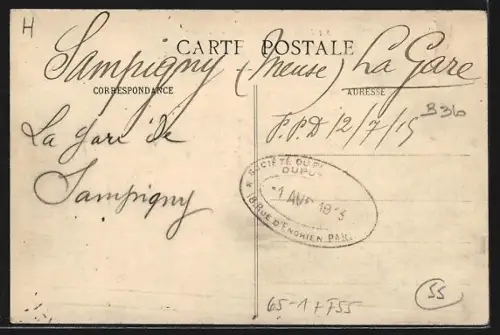 H
CARTE POSTALE
Sampigny (Meuse) La Gare
CORRESPONDANCE
ADRESSE
B36
La gare de
Sampigny
P.P.D 12/7/15
SOCIÉTÉ DU
DUPU
1 AV
18, RUE D'ENGHIEN PAR
65-1+F55
55